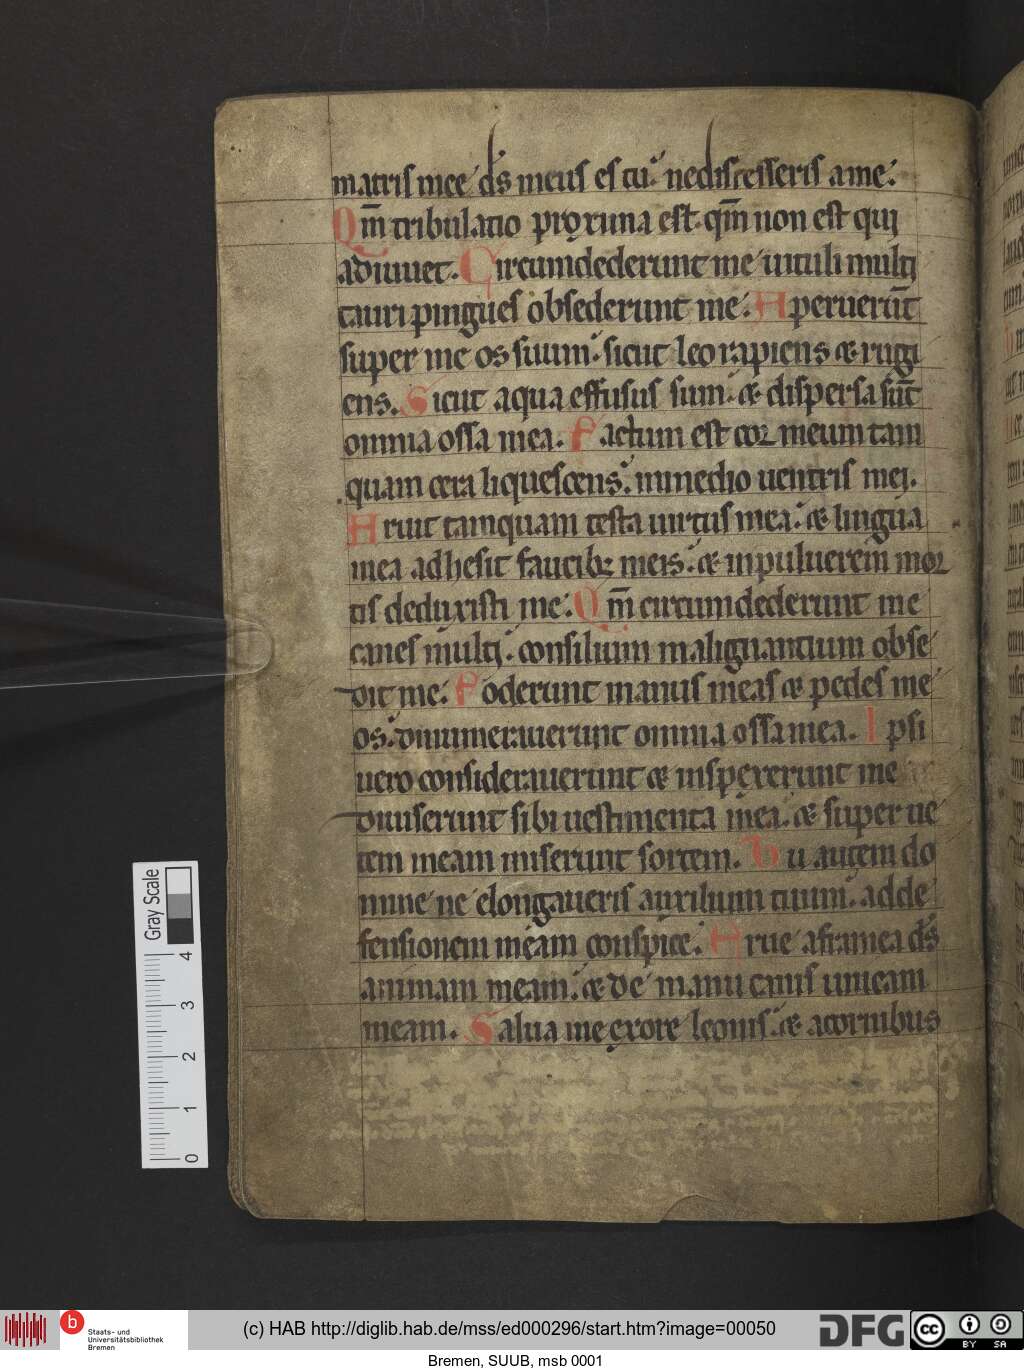 matris mee ds̄ meus es tu. ne discesseris a me.
Qm̄ tribulatio proxima est. qm̄ non est qui
adiuuet. Circumdederunt me uituli multi
tauri pingues obsederunt me. Aperuerūt
super me os suum. sicut leo rapiens & rugi
ens. Sicut aqua effusus sum. & dispersa sūt
omnia ossa mea. Factum est cor meum tam
quam cera liquescens. in medio uentris mei.
Aruit tamquam testa uirtus mea. & lingua
mea adhesit faucibꝫ meis. & in puluerem mor
tis deduxisti me. Qm̄ circumdederunt me
canes multi. consilium malignantium obse
dit me. Foderunt manus meas & pedes me
os. dinumerauerunt omnia ossa mea. Ipsi
uero considerauerunt & inspexerunt me
diuiserunt sibi uestimenta mea. & super ue
tem meam miserunt sortem. Tu autem do
mine ne elongaueris auxilium tuum. ad de
fensionem meam conspice. Erue a framea ds̄
animam meam. & de manu canis unicam
meam. Salua me ex ore leonis. & a cornibus
Gray Scale
4
3
2
1
0
b
Staats- und
Universitätsbibliothek
Bremen
(c) HAB http://diglib.hab.de/mss/ed000296/start.htm?image=00050
DFG
cc
BY SA
Bremen, SUUB, msb 0001